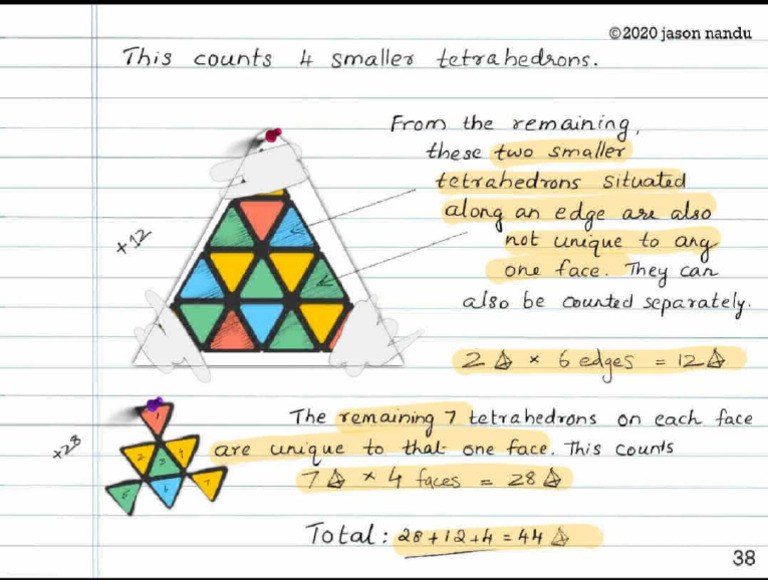 ©2020 jason nandu
This counts 4 smaller tetrahedrons.
From the remaining,
these two smaller
tetrahedrons situated
along an edge are also
not unique to any
one face. They can
also be counted separately.
+12
2 △ × 6 edges = 12 △
1
2 3 4
5 6 7
+28
The remaining 7 tetrahedrons on each face
are unique to that one face. This counts
7 △ × 4 faces = 28 △
Total: 28+12+4 = 44 △
38